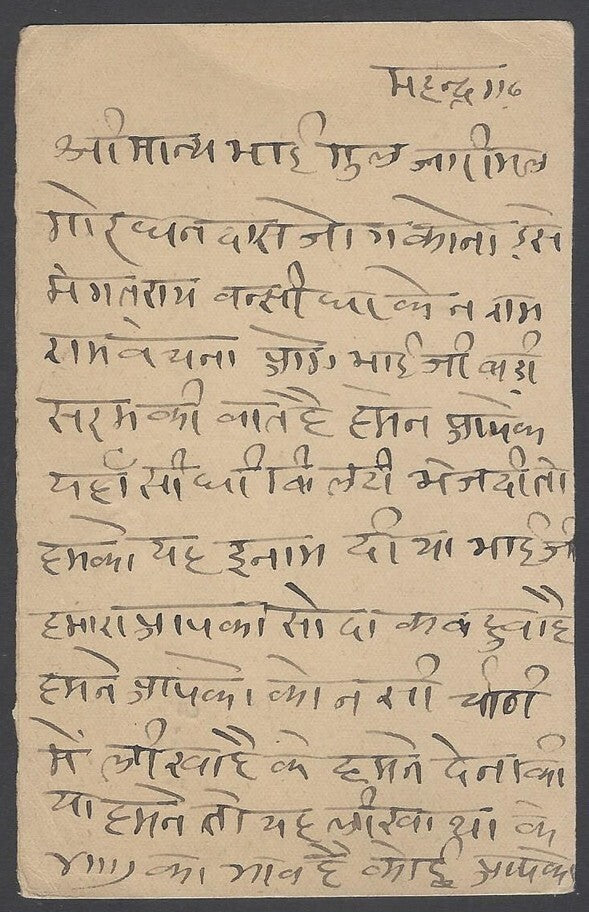 महन्द्रगढ
श्रीमान्य भाई गुल जारीमल
गोरधन दास जोग कोना इसे
मंगतराय वन्सीधर के न राम
राम वंचना आगे भाई जी बड़ी
सरम की बात है हमन आपके
यहाँ सीधी बिलटी भेज दी तो
हमको यह इनाम दीया भाई जी
हमारा आपका सोदा कब हुवा है
हमने आपको कोनसी चीठी
में लीखा है के हमने देना की
या हमने तो यह लीखा था के
का भाव है कोई आपके